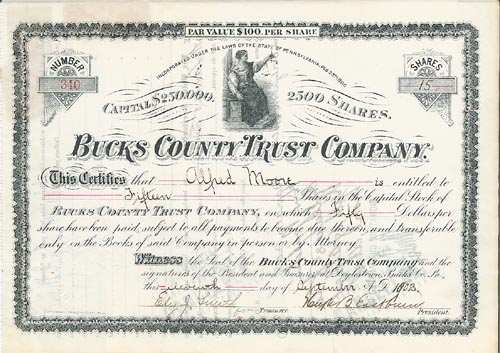 PAR VALUE $100. PER SHARE
INCORPORATED UNDER THE LAWS OF THE STATE OF PENNSYLVANIA,
NUMBER
340
SHARES
15
CAPITAL $250,000. 2500 SHARES.
BUCKS COUNTY TRUST COMPANY.
This Certifies that Alfred Moore is entitled to
Fifteen Shares in the Capital Stock of
BUCKS COUNTY TRUST COMPANY, on which Fifty Dollars per
share have been paid, subject to all payments to become due thereon, and transferable
only on the Books of said Company in person or by Attorney.
Witness the Seal of the Bucks County Trust Company and the
signatures of the President and Treasurer, at Doylestown, Bucks Co. Pa.,
this day of September A.D.
Treasurer.
President.